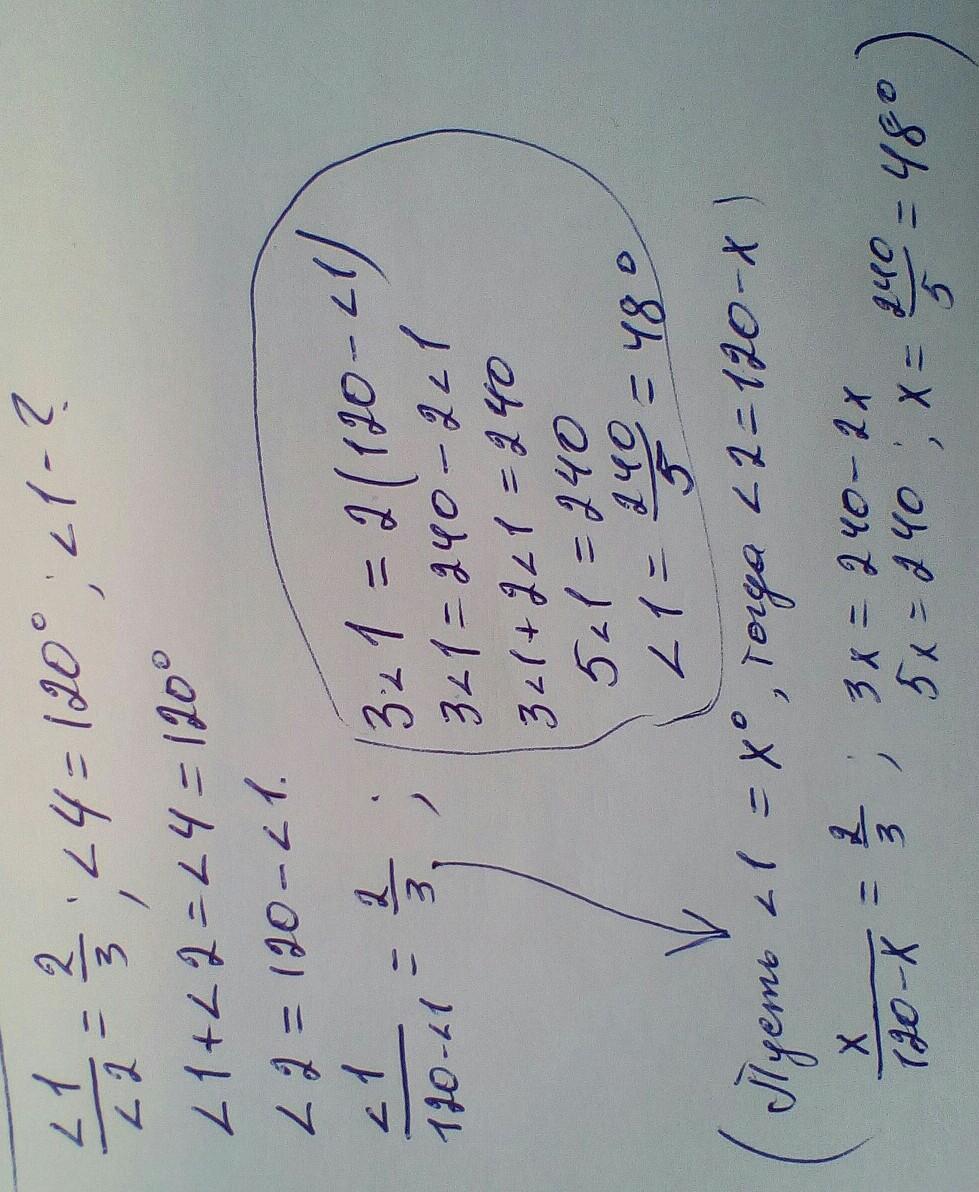 ∠1/∠2 = 2/3; ∠4 = 120°; ∠1 - ?
∠1 + ∠2 = ∠4 = 120°
∠2 = 120 - ∠1.
∠1/(120 - ∠1) = 2/3;
3∠1 = 2(120 - ∠1)
3∠1 = 240 - 2∠1
3∠1 + 2∠1 = 240
5∠1 = 240
∠1 = 240/5 = 48°
(Пусть ∠1 = x°, тогда ∠2 = 120 - x)
x/(120 - x) = 2/3; 3x = 240 - 2x
5x = 240; x = 240/5 = 48°)